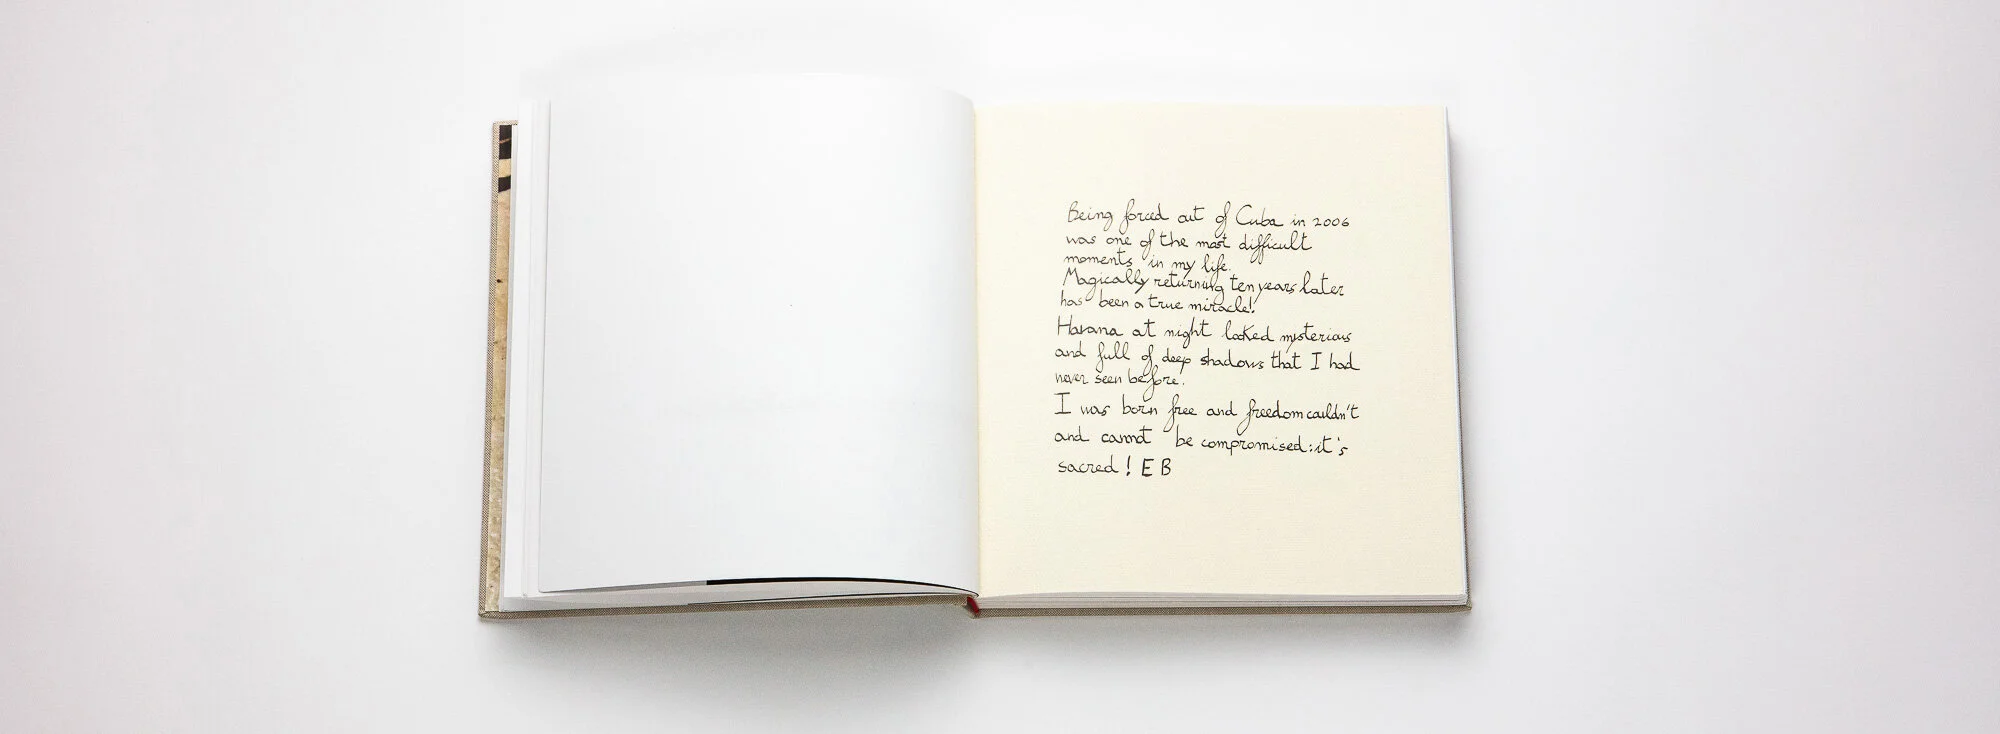 Being forced out of Cuba in 2006
was one of the most difficult
moments in my life.
Magically returning ten years later
has been a true miracle!
Havana at night looked mysterious
and full of deep shadows that I had
never seen before.
I was born free and freedom couldn't
and cannot be compromised: it's
sacred! E B